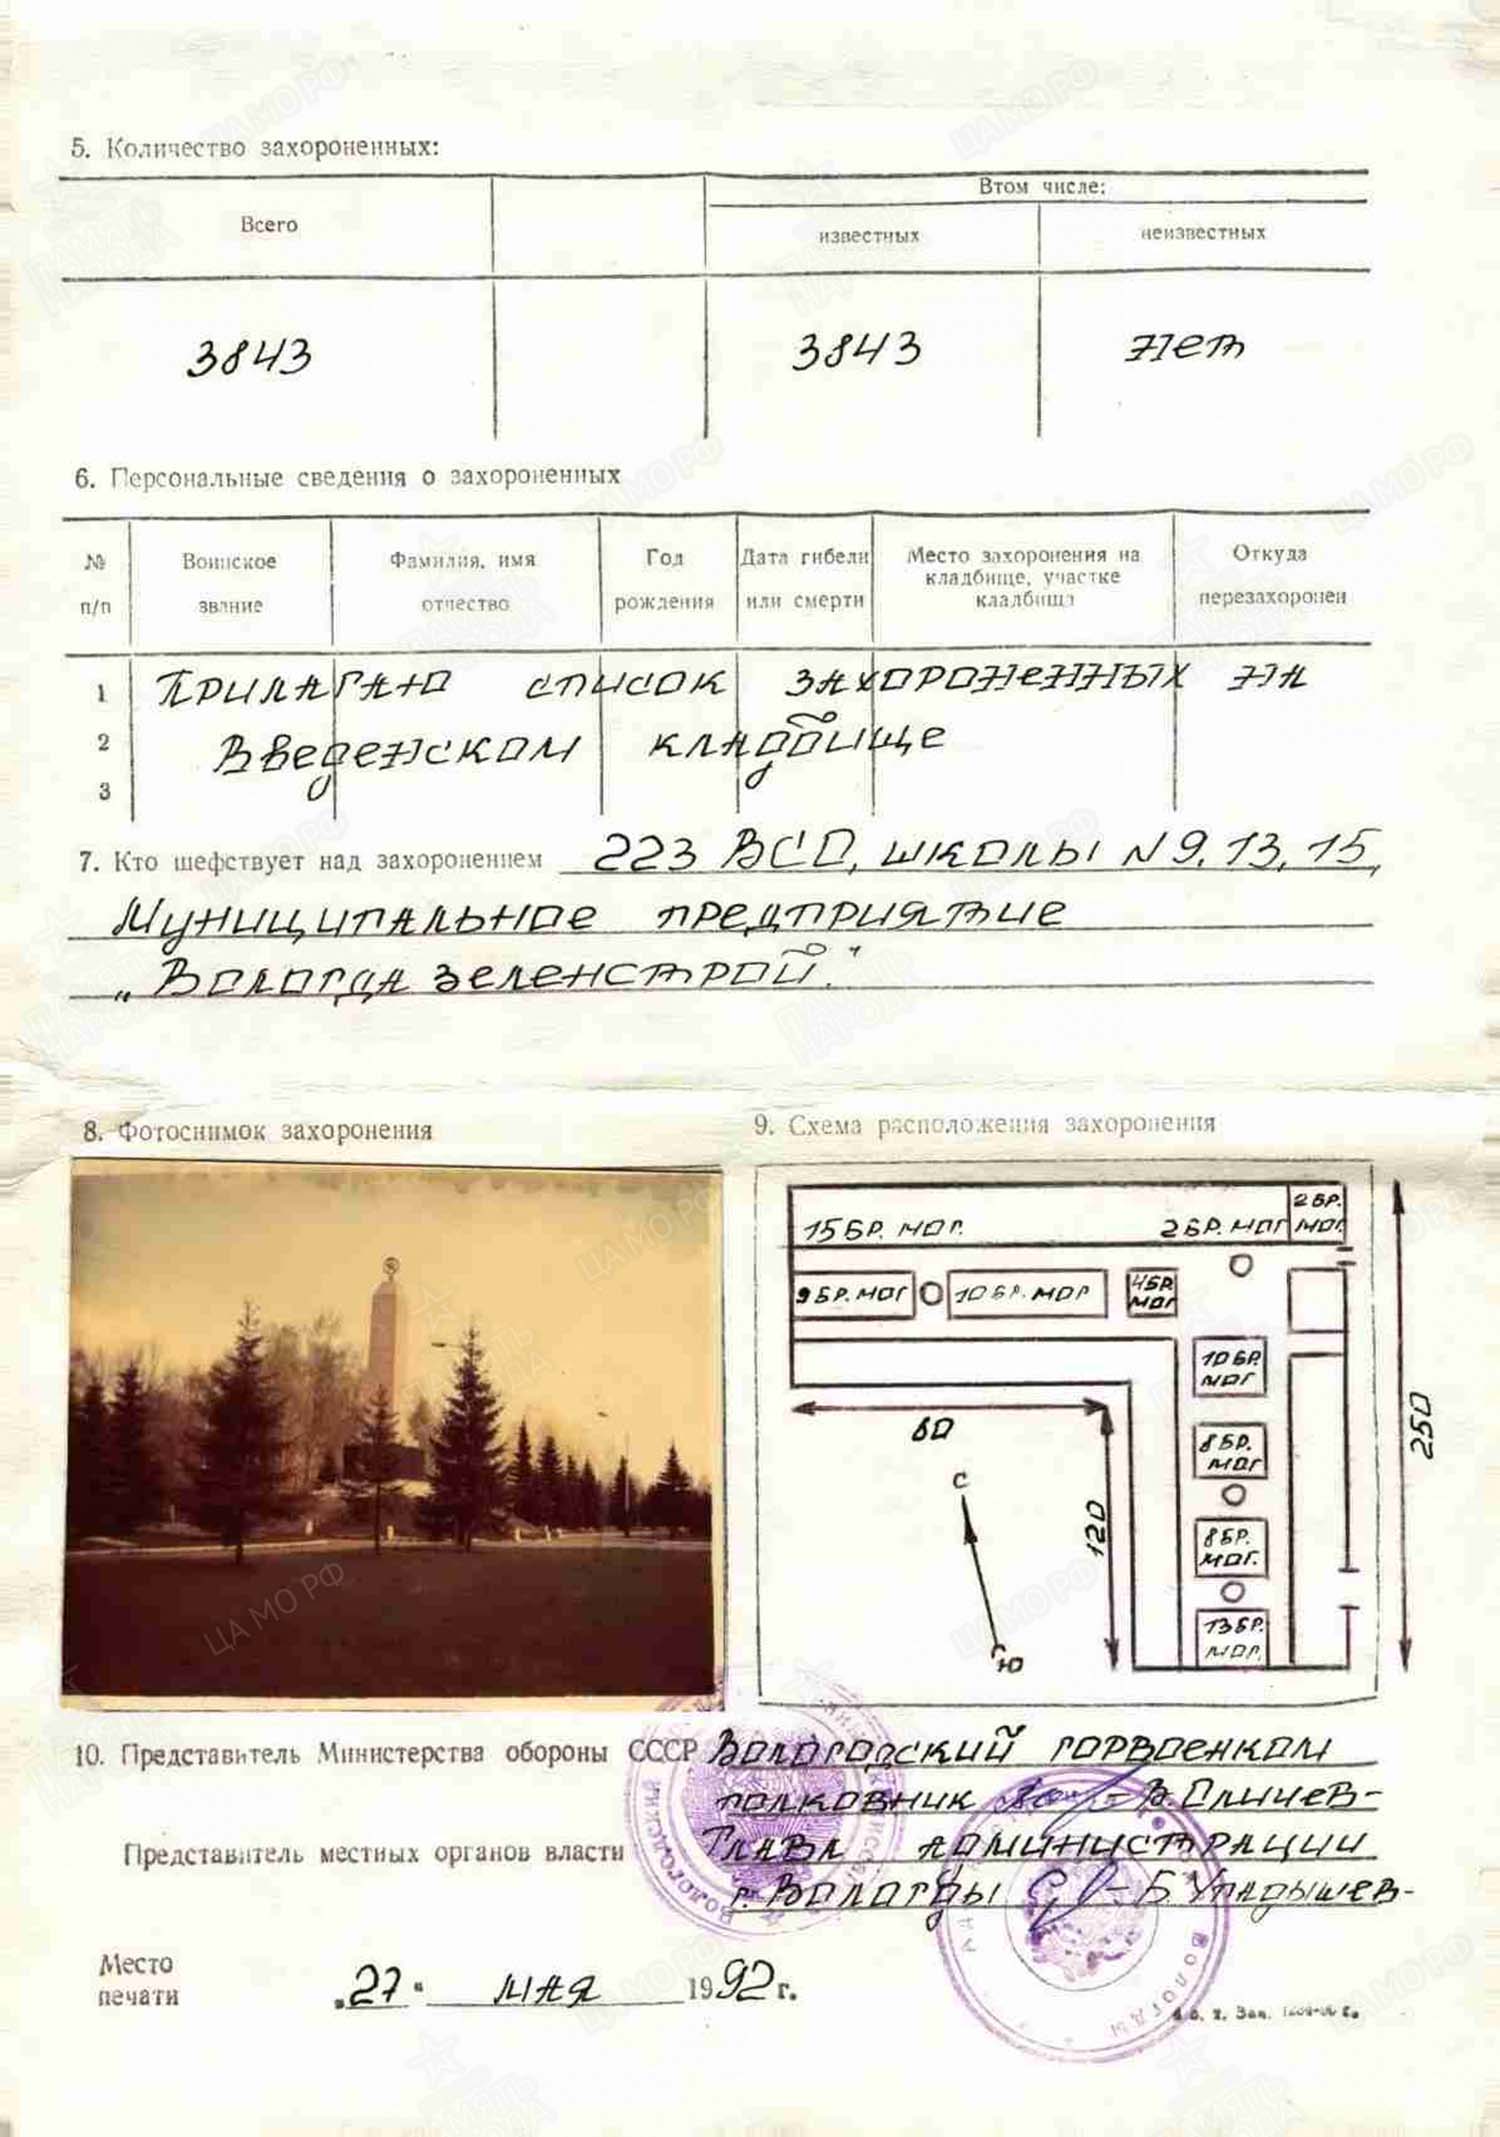 5. Количество захороненных:
Всего
Втом числе:
известных
неизвестных
3843
3843
нет
6. Персональные сведения о захороненных
№ п/п
Воинское звание
Фамилия, имя отчество
Год рождения
Дата гибели или смерти
Место захоронения на кладбище, участке кладбища
Откуда перезахоронен
1 Прилагаю список захороненных на
2 Введенском кладбище
3
7. Кто шефствует над захоронением 223 ВСО, школы №9, 13, 15,
Муниципальное предприятие
„Вологдазеленстрой."
8. Фотоснимок захоронения
9. Схема расположения захоронения
15 БР. МОГ.
2 БР. МОГ
2 БР. МОГ.
9 БР. МОГ
10 БР. МОГ
4 БР. МОГ
10 БР. МОГ
8 БР. МОГ
8 БР. МОГ.
13 БР. МОГ.
60
120
250
С
Ю
10. Представитель Министерства обороны СССР Вологодский горвоенком
полковник – В. Сличев–
Представитель местных органов власти Глава администрации
г. Вологды – Б. Упадышев–
Место печати
„27" мая 1992 г.
ЦА МО РФ